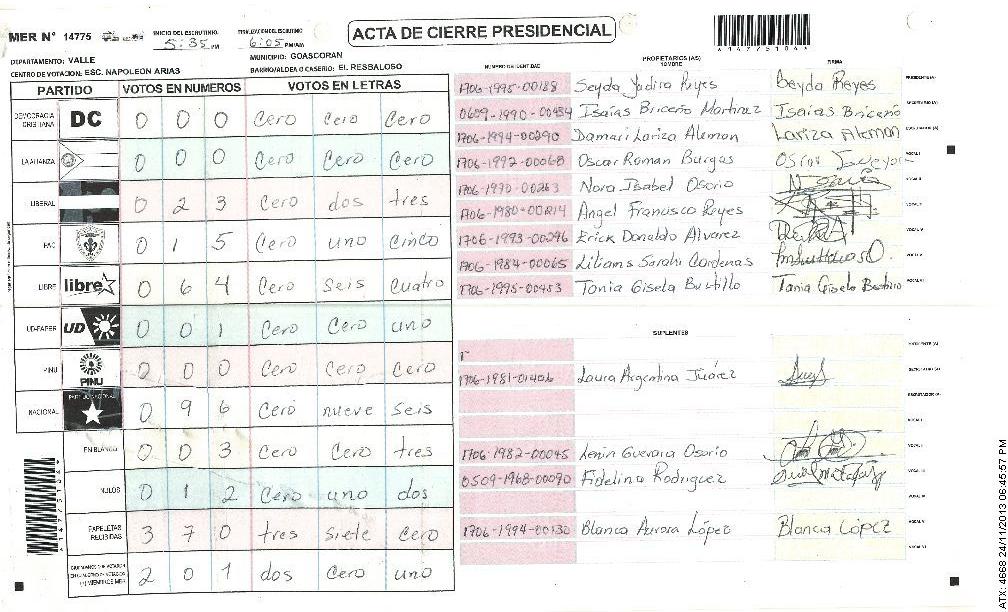 MER N° 14775
INICIO DEL ESCRUTINIO 5:35 PM
FINALIZACION DEL ESCRUTINIO 6:05 PM/AM
ACTA DE CIERRE PRESIDENCIAL
DEPARTAMENTO: VALLE
MUNICIPIO: GOASCORAN
CENTRO DE VOTACION: ESC. NAPOLEON ARIAS
BARRIO/ALDEA O CASERIO: EL RESBALOSO
PARTIDO VOTOS EN NUMEROS VOTOS EN LETRAS
DEMOCRACIA CRISTIANA DC 0 0 0 Cero Cero Cero
LA ALIANZA 0 0 0 Cero Cero Cero
LIBERAL 0 2 3 Cero dos tres
PAC 0 1 5 Cero uno Cinco
LIBRE libre 0 6 4 Cero Seis Cuatro
UD-FAPER UD 0 0 1 Cero Cero uno
PINU PINU 0 0 0 Cero Cero Cero
NACIONAL PARTIDO NACIONAL 0 9 6 Cero nueve Seis
EN BLANCO 0 0 3 Cero Cero tres
NULOS 0 1 2 Cero uno dos
PAPELETAS RECIBIDAS 3 7 0 tres Siete Cero
2 0 1 dos Cero uno
NUMERO DE IDENTIDAD PROPIETARIOS (AS) NOMBRE FIRMA
1706-1995-00188 Seyda Yadira Reyes Seyda Reyes PRESIDENTE (A)
0609-1990-00434 Isaías Briceño Martinez Isaias Briceño SECRETARIO (A)
1706-1994-00290 Damari Lariza Aleman Lariza Aleman ESCRUTADOR (A)
1706-1992-00068 Oscar Roman Burgas Oscar VOCAL I
1706-1990-00263 Nora Isabel Osorio VOCAL II
1706-1980-00214 Angel Francisco Reyes
1706-1993-00296 Erick Donaldo Alvarez VOCAL IV
1706-1984-00065 Liliams Sarahi Cardenas VOCAL V
1706-1995-00453 Tania Gisela Bustillo Tania Gisela Bustillo VOCAL VI
SUPLENTES
1706-1981-01406 Laura Argentina Juárez SECRETARIO (A)
1706-1982-00045 Lenin Guevara Osorio
0509-1968-00090 Fidelina Rodriguez
1706-1994-00130 Blanca Aurora López Blanca López VOCAL V
VOCAL VI
ATX: 4668 24/11/2013 06:45:57 PM